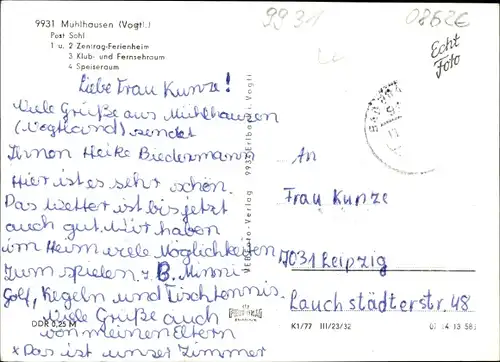 9931 Mühlhausen (Vogtl.)
Post Sohl
1 u. 2 Zentrag-Ferienheim
3 Klub- und Fernsehraum
4 Speiseraum
9931
Echt
Foto
Liebe Frau Kunze!
Viele Grüße aus Mühlhausen
(Vogtland) sendet
Ihnen Heike Biedermann
Hier ist es sehr schön.
Das Wetter ist bis jetzt
auch gut. Wir haben
im Heim viele Möglichkeiten
zum spielen z. B. Minni
Golf, Kegeln und Tischtennis.
Viele Grüße auch
von meinen Eltern
x Das ist unser Zimmer
DDR 0,25 M
Foto-Verlag 9936 Erlbach, Vogtl.
An
Frau Kunze
7031 Leipzig
Lauchstädterstr. 48
K1/77 III/23/32
01 14 13 581